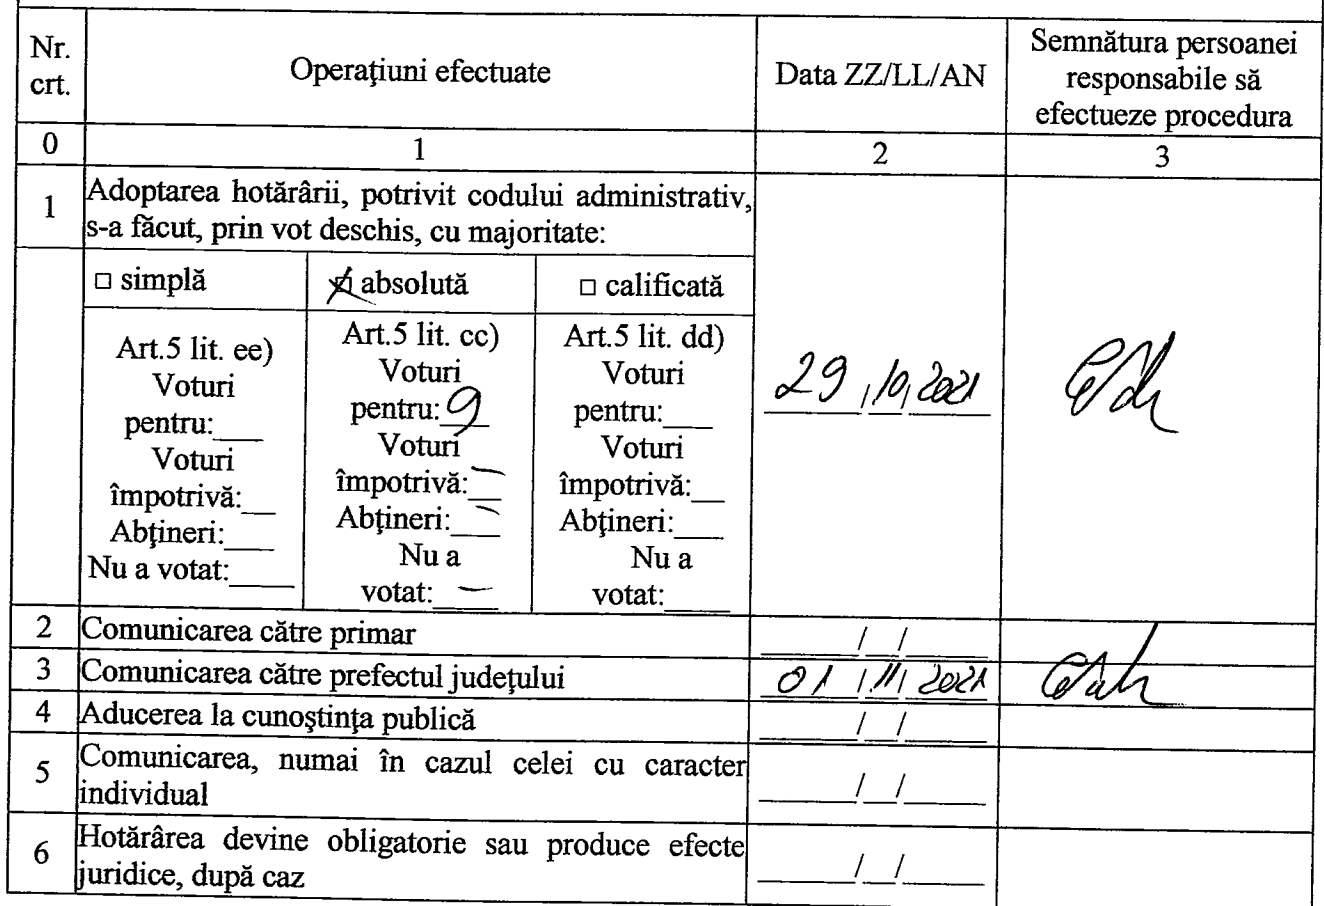 Nr. crt.
Operaţiuni efectuate
Data ZZ/LL/AN
Semnătura persoanei
responsabile să
efectueze procedura
0
1
2
3
1
Adoptarea hotărârii, potrivit codului administrativ,
s-a făcut, prin vot deschis, cu majoritate:
□ simplă
Art.5 lit. ee)
Voturi
pentru:___
Voturi
împotrivă:___
Abţineri:___
Nu a votat:____
☒ absolută
Art.5 lit. cc)
Voturi
pentru: 9
Voturi
împotrivă: –
Abţineri: –
Nu a
votat: –
□ calificată
Art.5 lit. dd)
Voturi
pentru:___
Voturi
împotrivă:___
Abţineri:___
Nu a
votat:____
29/10/2021
2
Comunicarea către primar
____/__/____
3
Comunicarea către prefectul judeţului
01/11/2021
4
Aducerea la cunoştinţa publică
____/__/____
5
Comunicarea, numai în cazul celei cu caracter
individual
____/__/____
6
Hotărârea devine obligatorie sau produce efecte
juridice, după caz
____/__/____